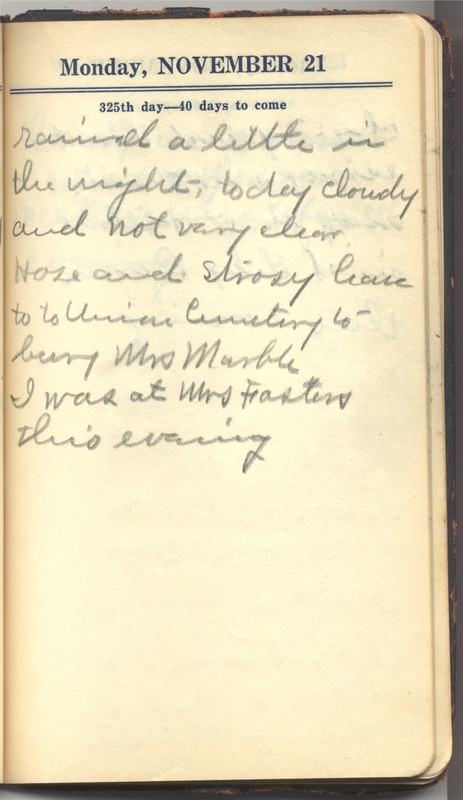 Monday, NOVEMBER 21
325th day—40 days to come
rained a little in
the night, today cloudy
and not vary clear
Hose and Strosy
to to Union Cemetery to
bury Mrs Marble
I was at Mrs Fosters
this evening